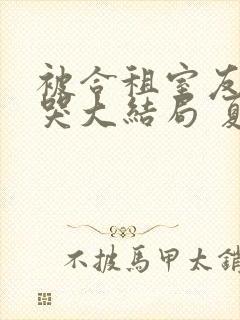 被合租室友
哭大結局 夏
不披馬甲太銷